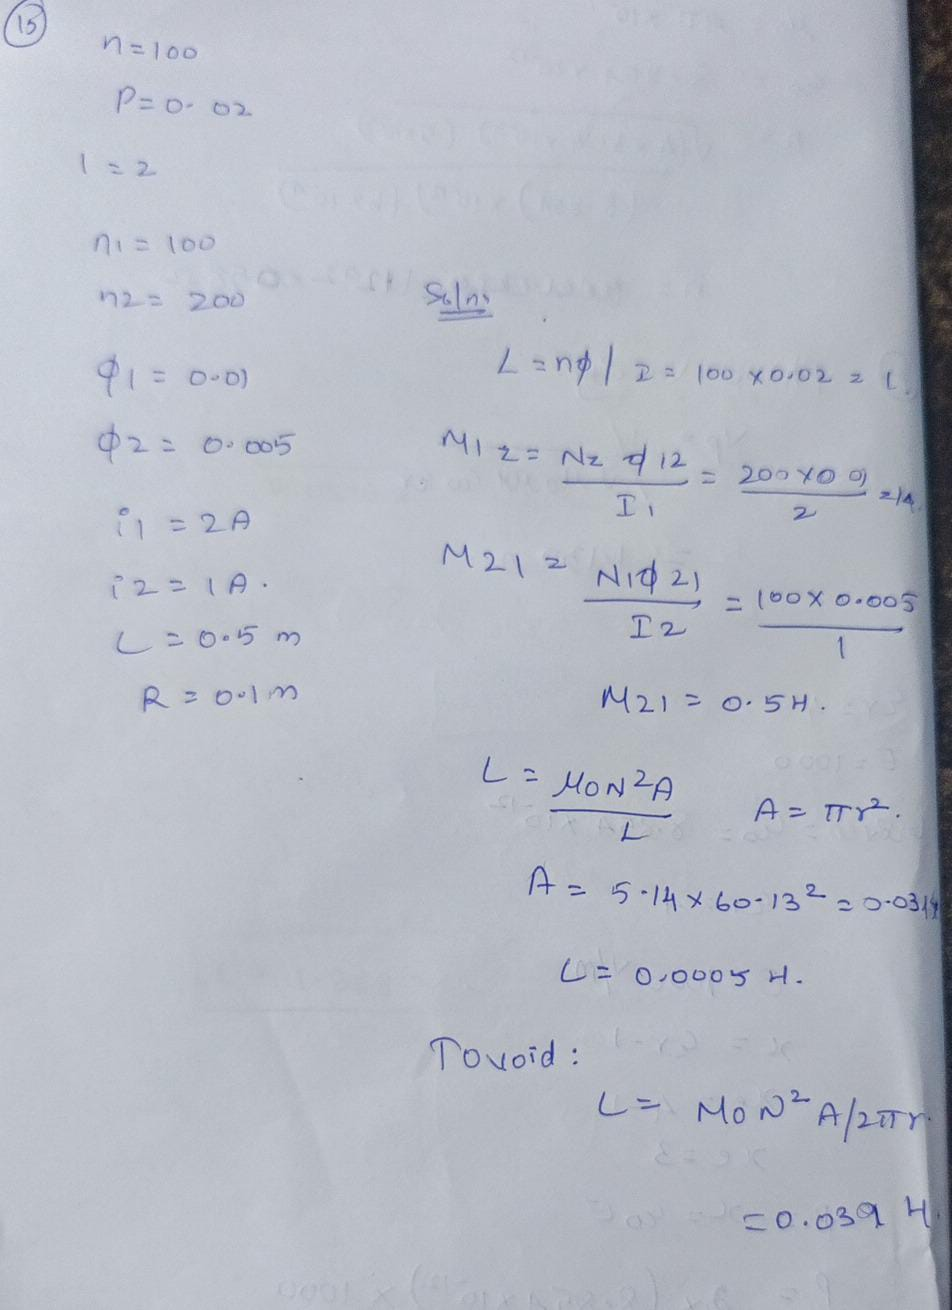 15
n=100
P=0.02
l=2
n1=100
n2=200
φ1=0.01
φ2=0.005
i1=2A
i2=1A.
L=0.5 m
R=0.1m
Solns
L=nφ/I=100×0.02=1.
M12=N2φ12/I1=200×0.01/2=1A.
M21=N1φ21/I2=100×0.005/1
M21=0.5H.
L=μ0N²A/L A=πr².
A=5.14×60.13²=0.0314
L=0.0005 H.
Toroid:
L=μ0N²A/2πr.
=0.039 H.